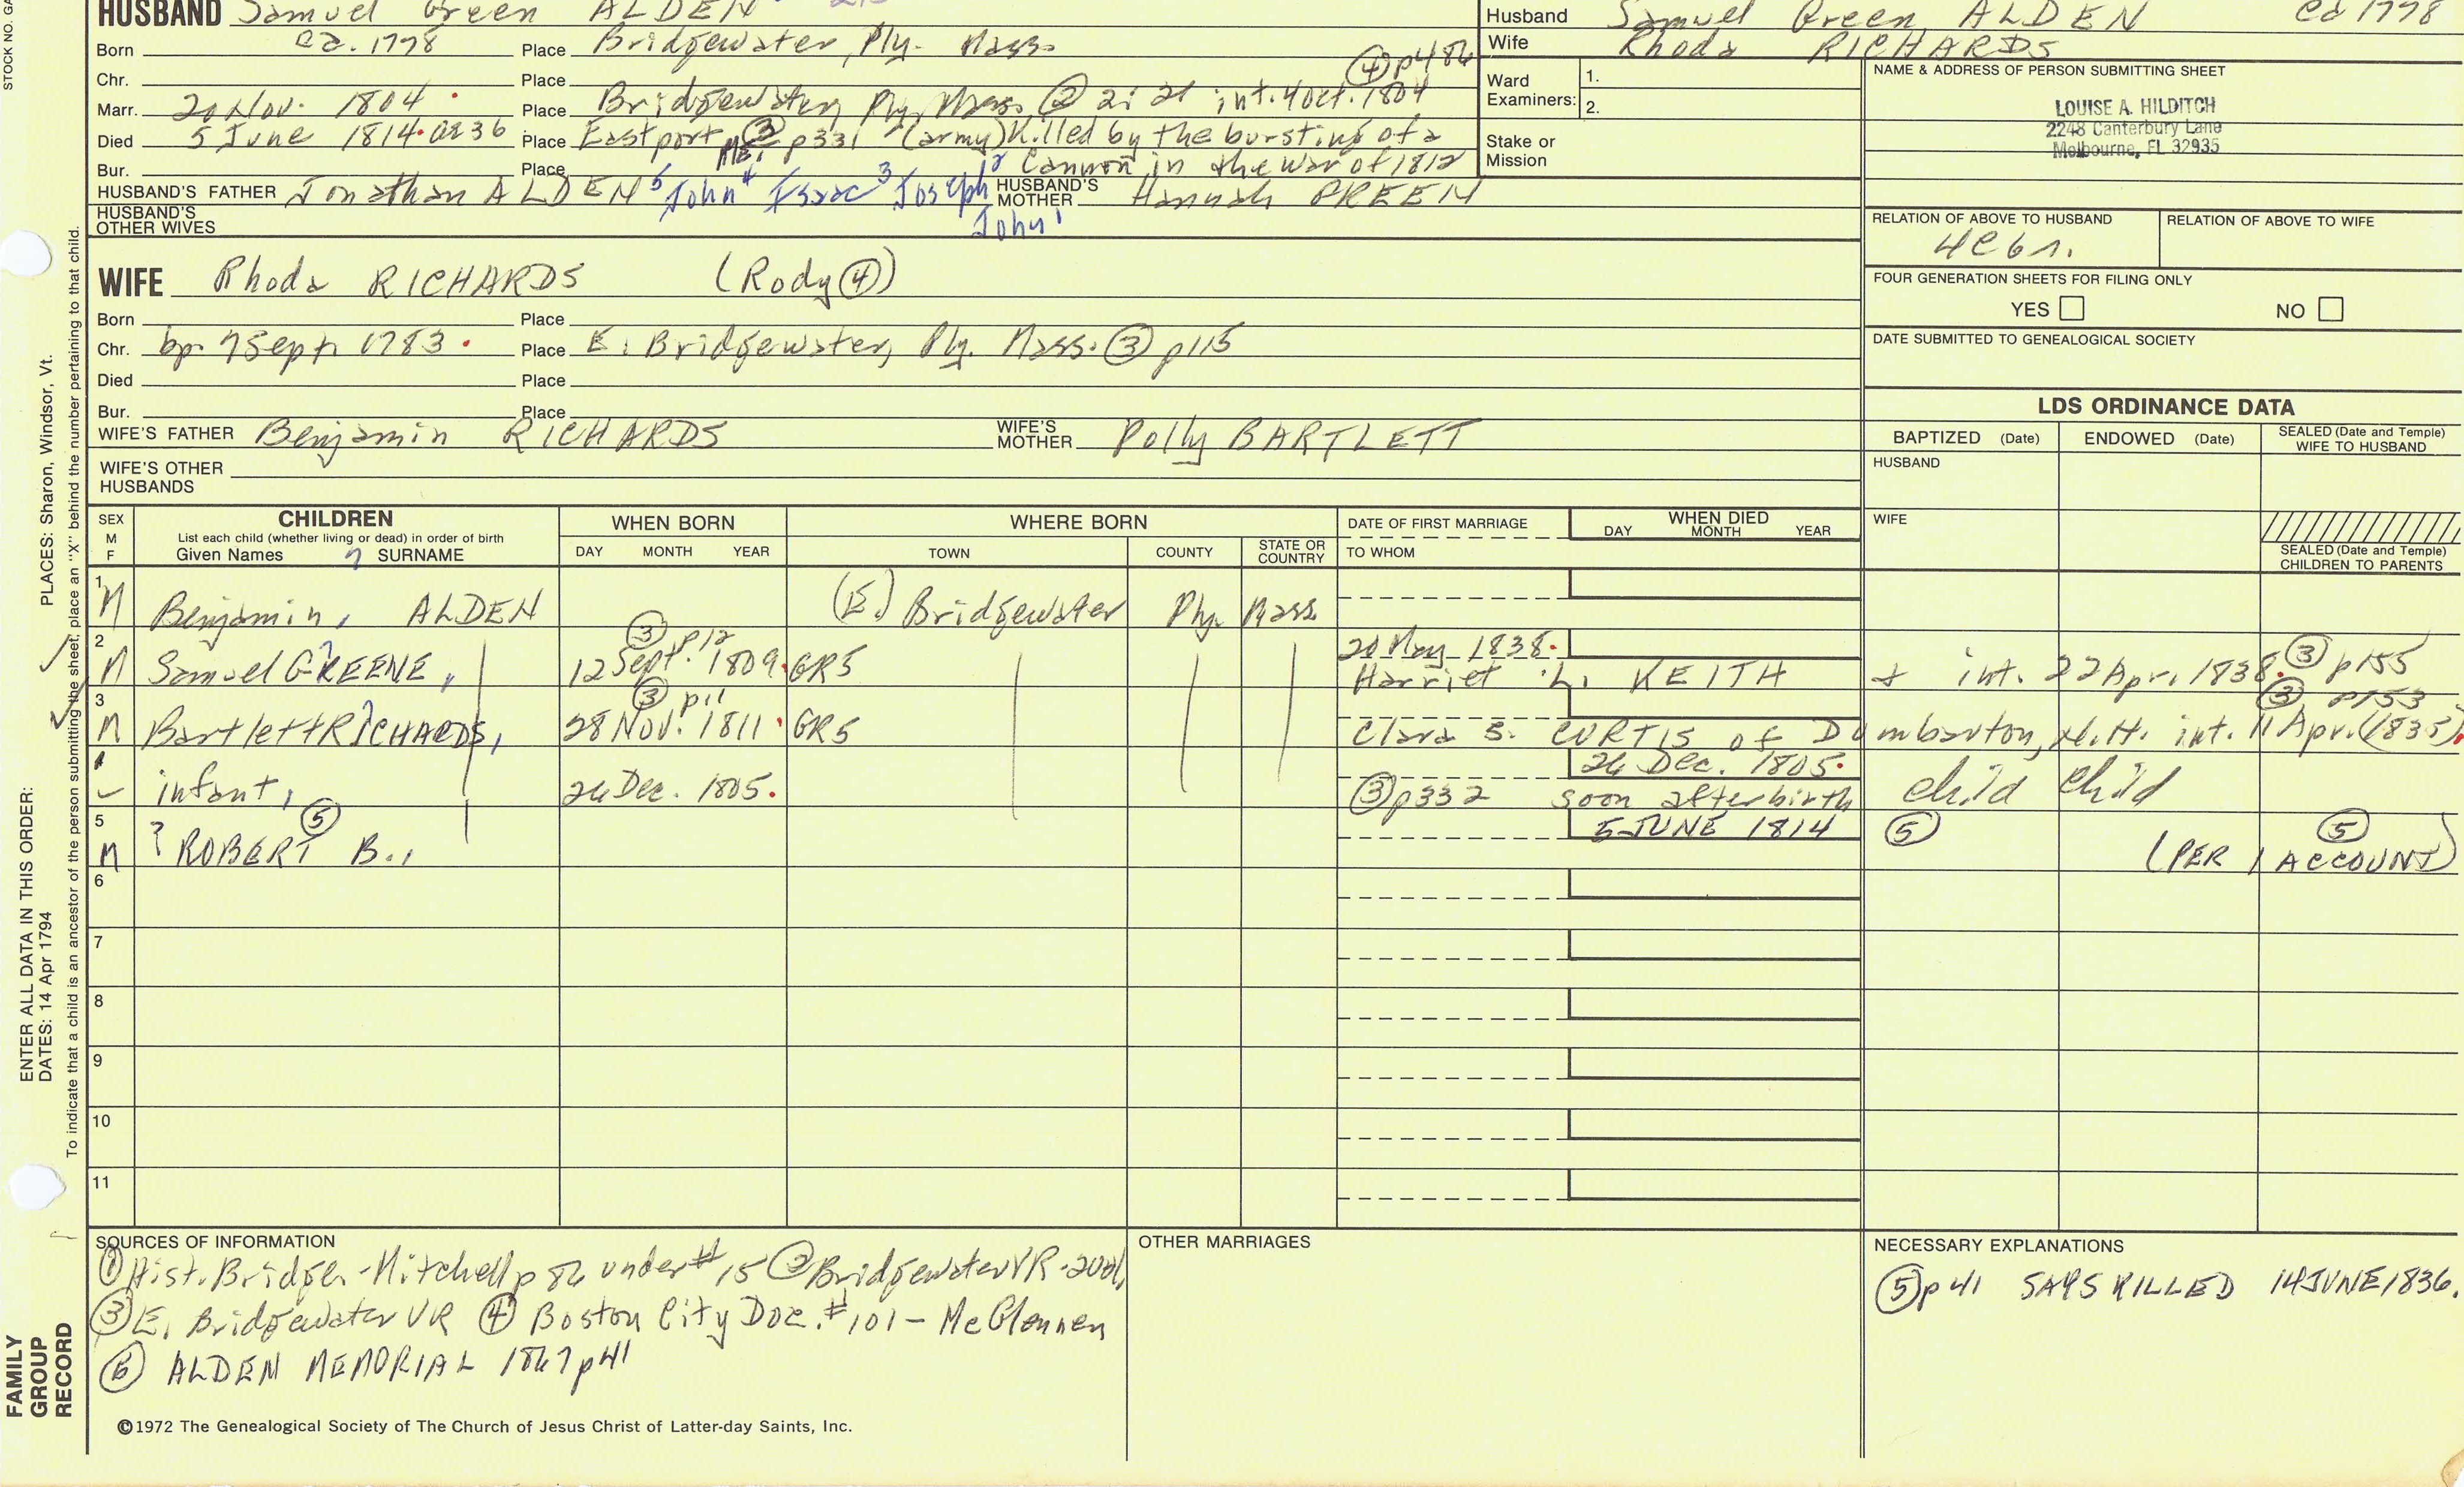 HUSBAND Samuel Green ALDEN
Born ca. 1778 Place Bridgewater, Ply. Mass.
Chr. Place ④ p486
Marr. 20 Nov. 1804. Place Bridgewater, Ply, Mass ② int. 4 Oct. 1804
Died 5 June 1814. ae 36 Place Eastport, ME, ③ p331 (army) killed by the bursting of a
Bur. Place Cannon in the war of 1812
HUSBAND'S FATHER Jonathan ALDEN 5 John 4 Isaac 3 Joseph John 1 HUSBAND'S MOTHER Hannah GREEN
HUSBAND'S OTHER WIVES
Husband Samuel Green ALDEN ca 1778
Wife Rhoda RICHARDS
Ward Examiners: 1.
2.
Stake or Mission
NAME & ADDRESS OF PERSON SUBMITTING SHEET
LOUISE A. HILDITCH
2248 Canterbury Lane
Melbourne, FL 32935
RELATION OF ABOVE TO HUSBAND RELATION OF ABOVE TO WIFE
4c6r.
FOUR GENERATION SHEETS FOR FILING ONLY
YES NO
DATE SUBMITTED TO GENEALOGICAL SOCIETY
WIFE Rhoda RICHARDS (Rody ④)
Born Place
Chr. bp. 7 Sept. 1783. Place E. Bridgewater, Ply. Mass. ③ p115
Died Place
Bur. Place
WIFE'S FATHER Benjamin RICHARDS WIFE'S MOTHER Polly BARTLETT
WIFE'S OTHER HUSBANDS
LDS ORDINANCE DATA
BAPTIZED (Date) ENDOWED (Date) SEALED (Date and Temple) WIFE TO HUSBAND
HUSBAND
WIFE
SEALED (Date and Temple) CHILDREN TO PARENTS
SEX M F CHILDREN List each child (whether living or dead) in order of birth Given Names SURNAME
WHEN BORN DAY MONTH YEAR
WHERE BORN TOWN COUNTY STATE OR COUNTRY
DATE OF FIRST MARRIAGE TO WHOM
WHEN DIED DAY MONTH YEAR
1 M Benjamin, ALDEN (E.) Bridgewater Ply. Mass.
2 M Samuel GREENE, ③ p12 12 Sept. 1809. GR5 20 May 1838. Harriet L. KEITH + int. 22 Apr. 1838. ③ p155
3 M Bartlett RICHARDS, ③ p11 28 Nov. 1811. GR5 Clara S. CURTIS of Dumbarton, N.H. int. 11 Apr. (1835). ③ p153
infant, 26 Dec. 1805. ③ p332 26 Dec. 1805. soon after birth child child
5 M ? ROBERT B., ⑤ 5 JUNE 1814 ⑤ (PER 1 ACCOUNT) ⑤
6
7
8
9
10
11
SOURCES OF INFORMATION
① Hist. Bridger - Mitchell p 86 under #15 ② Bridgewater VR - 2vol,
③ E. Bridgewater VR ④ Boston City Doc. #101 - McGlennen
⑤ ALDEN MEMORIAL 1867 p41
OTHER MARRIAGES
NECESSARY EXPLANATIONS
⑤ p41 SAYS KILLED 14 JUNE 1836.
©1972 The Genealogical Society of The Church of Jesus Christ of Latter-day Saints, Inc.
STOCK NO. GA
ENTER ALL DATA IN THIS ORDER:
PLACES: Sharon, Windsor, Vt.
DATES: 14 Apr 1794
To indicate that a child is an ancestor of the person submitting the sheet, place an "X" behind the number pertaining to that child.
FAMILY
GROUP
RECORD